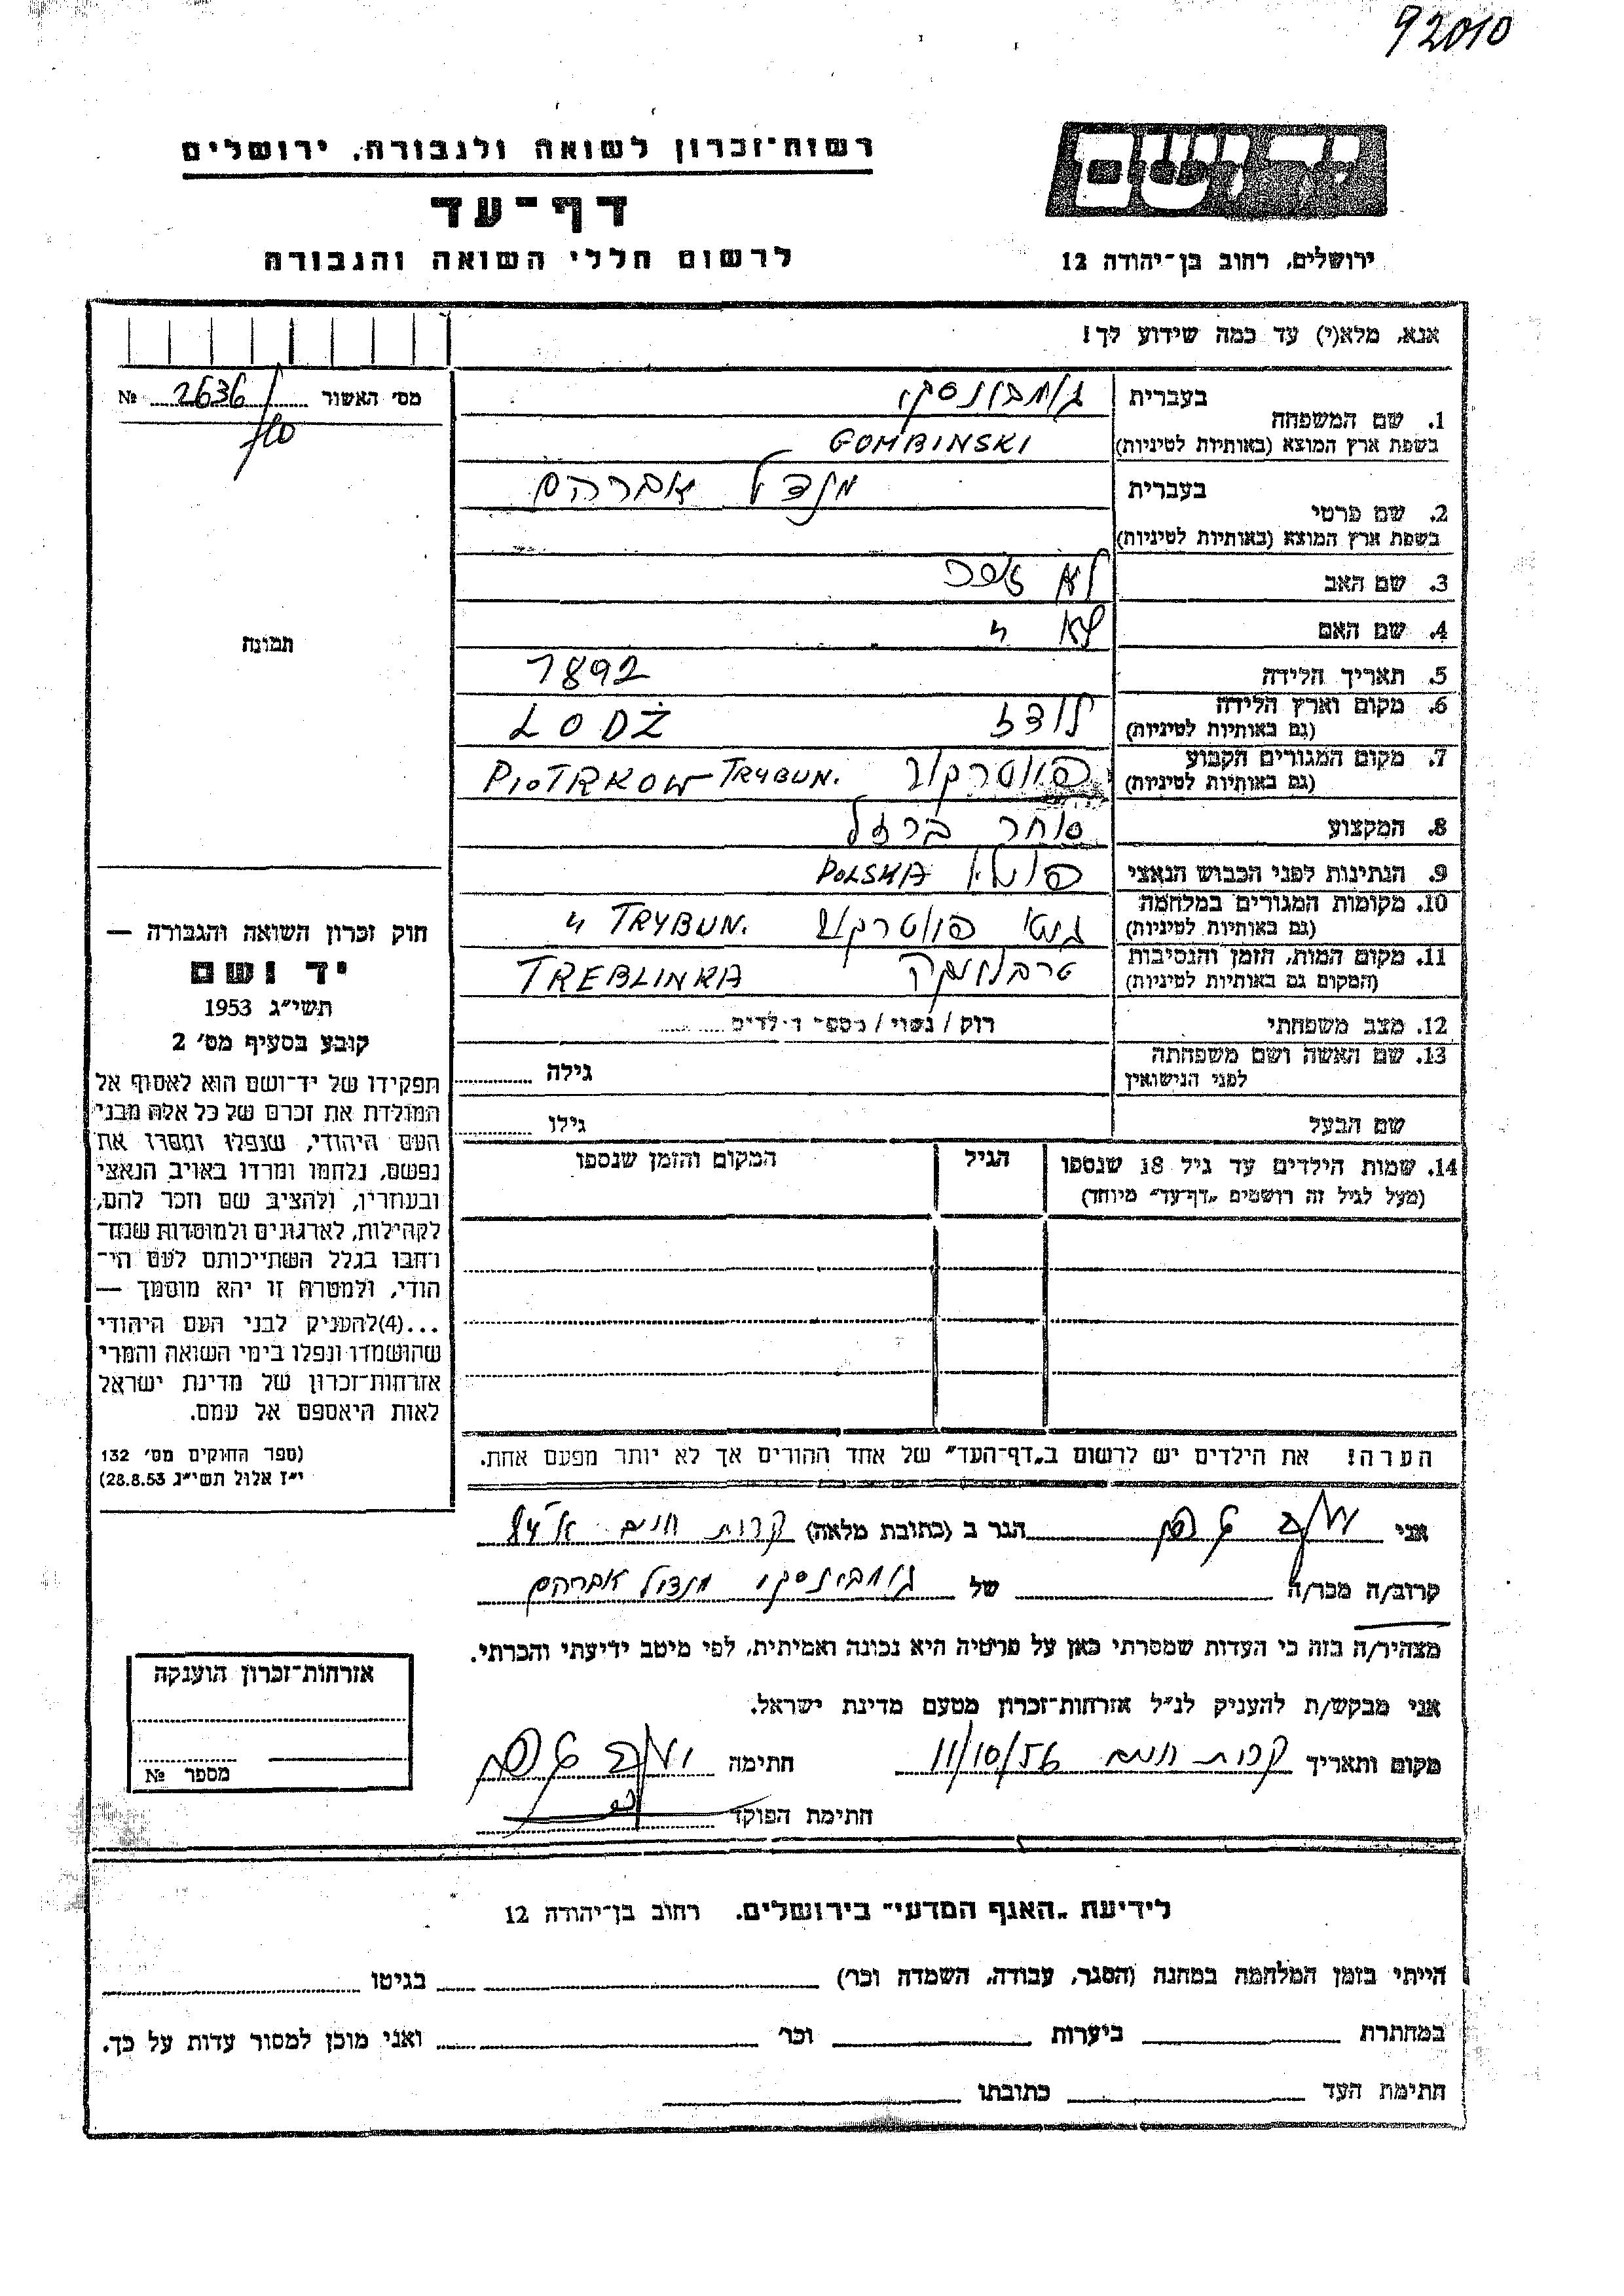 92010
רשות־זכרון לשואה ולגבורה, ירושלים
דף־עד
לרשום חללי השואה והגבורה
יד ושם
ירושלים, רחוב בן־יהודה 12
אנא, מלא(י) עד כמה שידוע לך!
מס׳ האשור 2636 №
1. שם המשפחה
בעברית גומבונסקי
בשפת ארץ המוצא (באותיות לטיניות) GOMBINSKI
2. שם פרטי
בעברית מנדל אברהם
בשפת ארץ המוצא (באותיות לטיניות)
3. שם האב לא זוכר
4. שם האם לא "
5. תאריך הלידה 1892
6. מקום וארץ הלידה לודז LODŻ
(גם באותיות לטיניות)
7. מקום המגורים הקבוע פיוטרקוב PIOTRKOW TRYBUN.
(גם באותיות לטיניות)
8. המקצוע סוחר ברזל
9. הנתינות לפני הכבוש הנאצי פולין POLSKA
10. מקומות המגורים במלחמה גטו פיוטרקוב " TRYBUN.
(גם באותיות לטיניות)
11. מקום המות, הזמן והנסיבות טרבלינקה TREBLINKA
(המקום גם באותיות לטיניות)
12. מצב משפחתי רוק / נשוי / מספר הילדים
13. שם האשה ושם משפחתה גילה
לפני הנישואין
שם הבעל גילו
14. שמות הילדים עד גיל 18 שנספו הגיל המקום והזמן שנספו
(מעל לגיל זה רושמים „דף־עד” מיוחד)
הערה! את הילדים יש לרשום ב„דף־העד” של אחד ההורים אך לא יותר מפעם אחת.
תמונה
חוק זכרון השואה והגבורה —
יד ושם
תשי״ג 1953
קובע בסעיף מס׳ 2
תפקידו של יד־ושם הוא לאסוף אל
המולדת את זכרם של כל אלה מבני
העם היהודי, שנפלו ומסרו את
נפשם, נלחמו ומרדו באויב הנאצי
ובעוזריו, ולהציב שם וזכר להם,
לקהילות, לארגונים ולמוסדות שנח־
רחבו בגלל השתייכותם לעם הי־
הודי, ולמטרה זו יהא מוסמך —
...(4)להעניק לבני העם היהודי
שהושמדו ונפלו בימי השואה והמרי
אזרחות־זכרון של מדינת ישראל
לאות היאספם אל עמם.
(ספר החוקים מס׳ 132
י״ז אלול תשי״ג 28.8.53)
אני הגר ב (כתובת מלאה) קרית חיים
קרוב/ה מכר/ה של גומבינסקי מנדל אברהם
מצהיר/ה בזה כי העדות שמסרתי כאן על פרטיה היא נכונה ואמיתית, לפי מיטב ידיעתי והכרתי.
אני מבקש/ת להעניק לנ״ל אזרחות־זכרון מטעם מדינת ישראל.
מקום ותאריך קרית חיים 11/10/56 חתימה
חתימת הפוקד
אזרחות־זכרון הוענקה
מספר №
לידיעת „האגף המדעי” בירושלים, רחוב בן־יהודה 12
הייתי בזמן המלחמה במחנה (הסגר, עבודה, השמדה וכו׳) בגיטו
במחתרת ביערות וכו׳ ואני מוכן למסור עדות על כך.
חתימת העד כתובתו